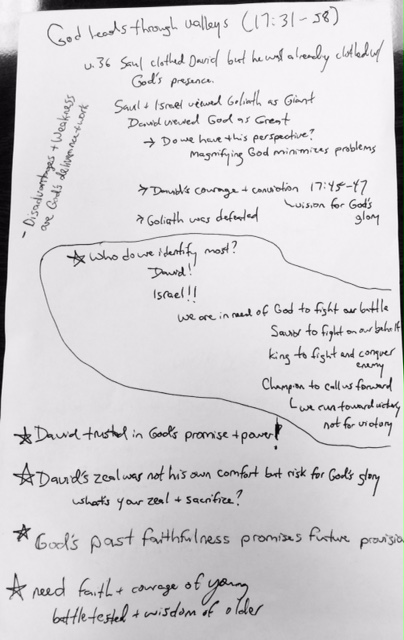 God leads through valleys (17:31-58)
v. 36 Saul clothed David but he was already clothed w/
God's presence.
Saul + Israel viewed Goliath as Giant
David viewed God as Great
→ Do we have this perspective?
Magnifying God minimizes problems
- Disadvantages + Weakness
are God's deliverance + work
→ David's courage + conviction 17:45-47
↳ vision for God's
glory
→ Goliath was defeated
☆ Who do we identify most?
David!
Israel!!
We are in need of God to fight our battle
Savior to fight on our behalf
King to fight and conquer
enemy
Champion to call us forward
↳ we run toward victory
not for victory
☆ David trusted in God's promise + power!
☆ David's zeal was not his own comfort but risk for God's glory
what's your zeal + sacrifice?
☆ God's past faithfulness promises future provision
☆ need faith + courage of young
battle tested + wisdom of older